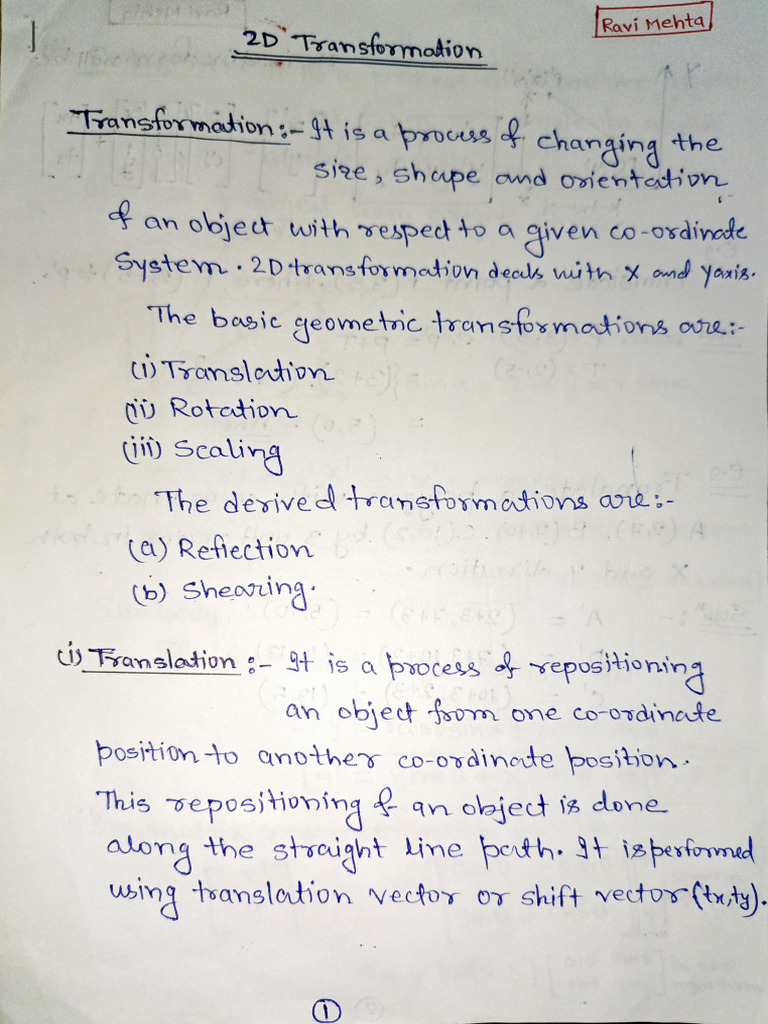 Ravi Mehta
2D Transformation
Transformation:- It is a process of changing the
size, shape and orientation
of an object with respect to a given co-ordinate
system. 2D transformation deals with X and Yaxis.
The basic geometric transformations are:-
(i) Translation
(ii) Rotation
(iii) Scaling
The derived transformations are:-
(a) Reflection
(b) Shearing.
(i) Translation:- It is a process of repositioning
an object from one co-ordinate
position to another co-ordinate position.
This repositioning of an object is done
along the straight line path. It is performed
using translation vector or shift vector (tx,ty).
1